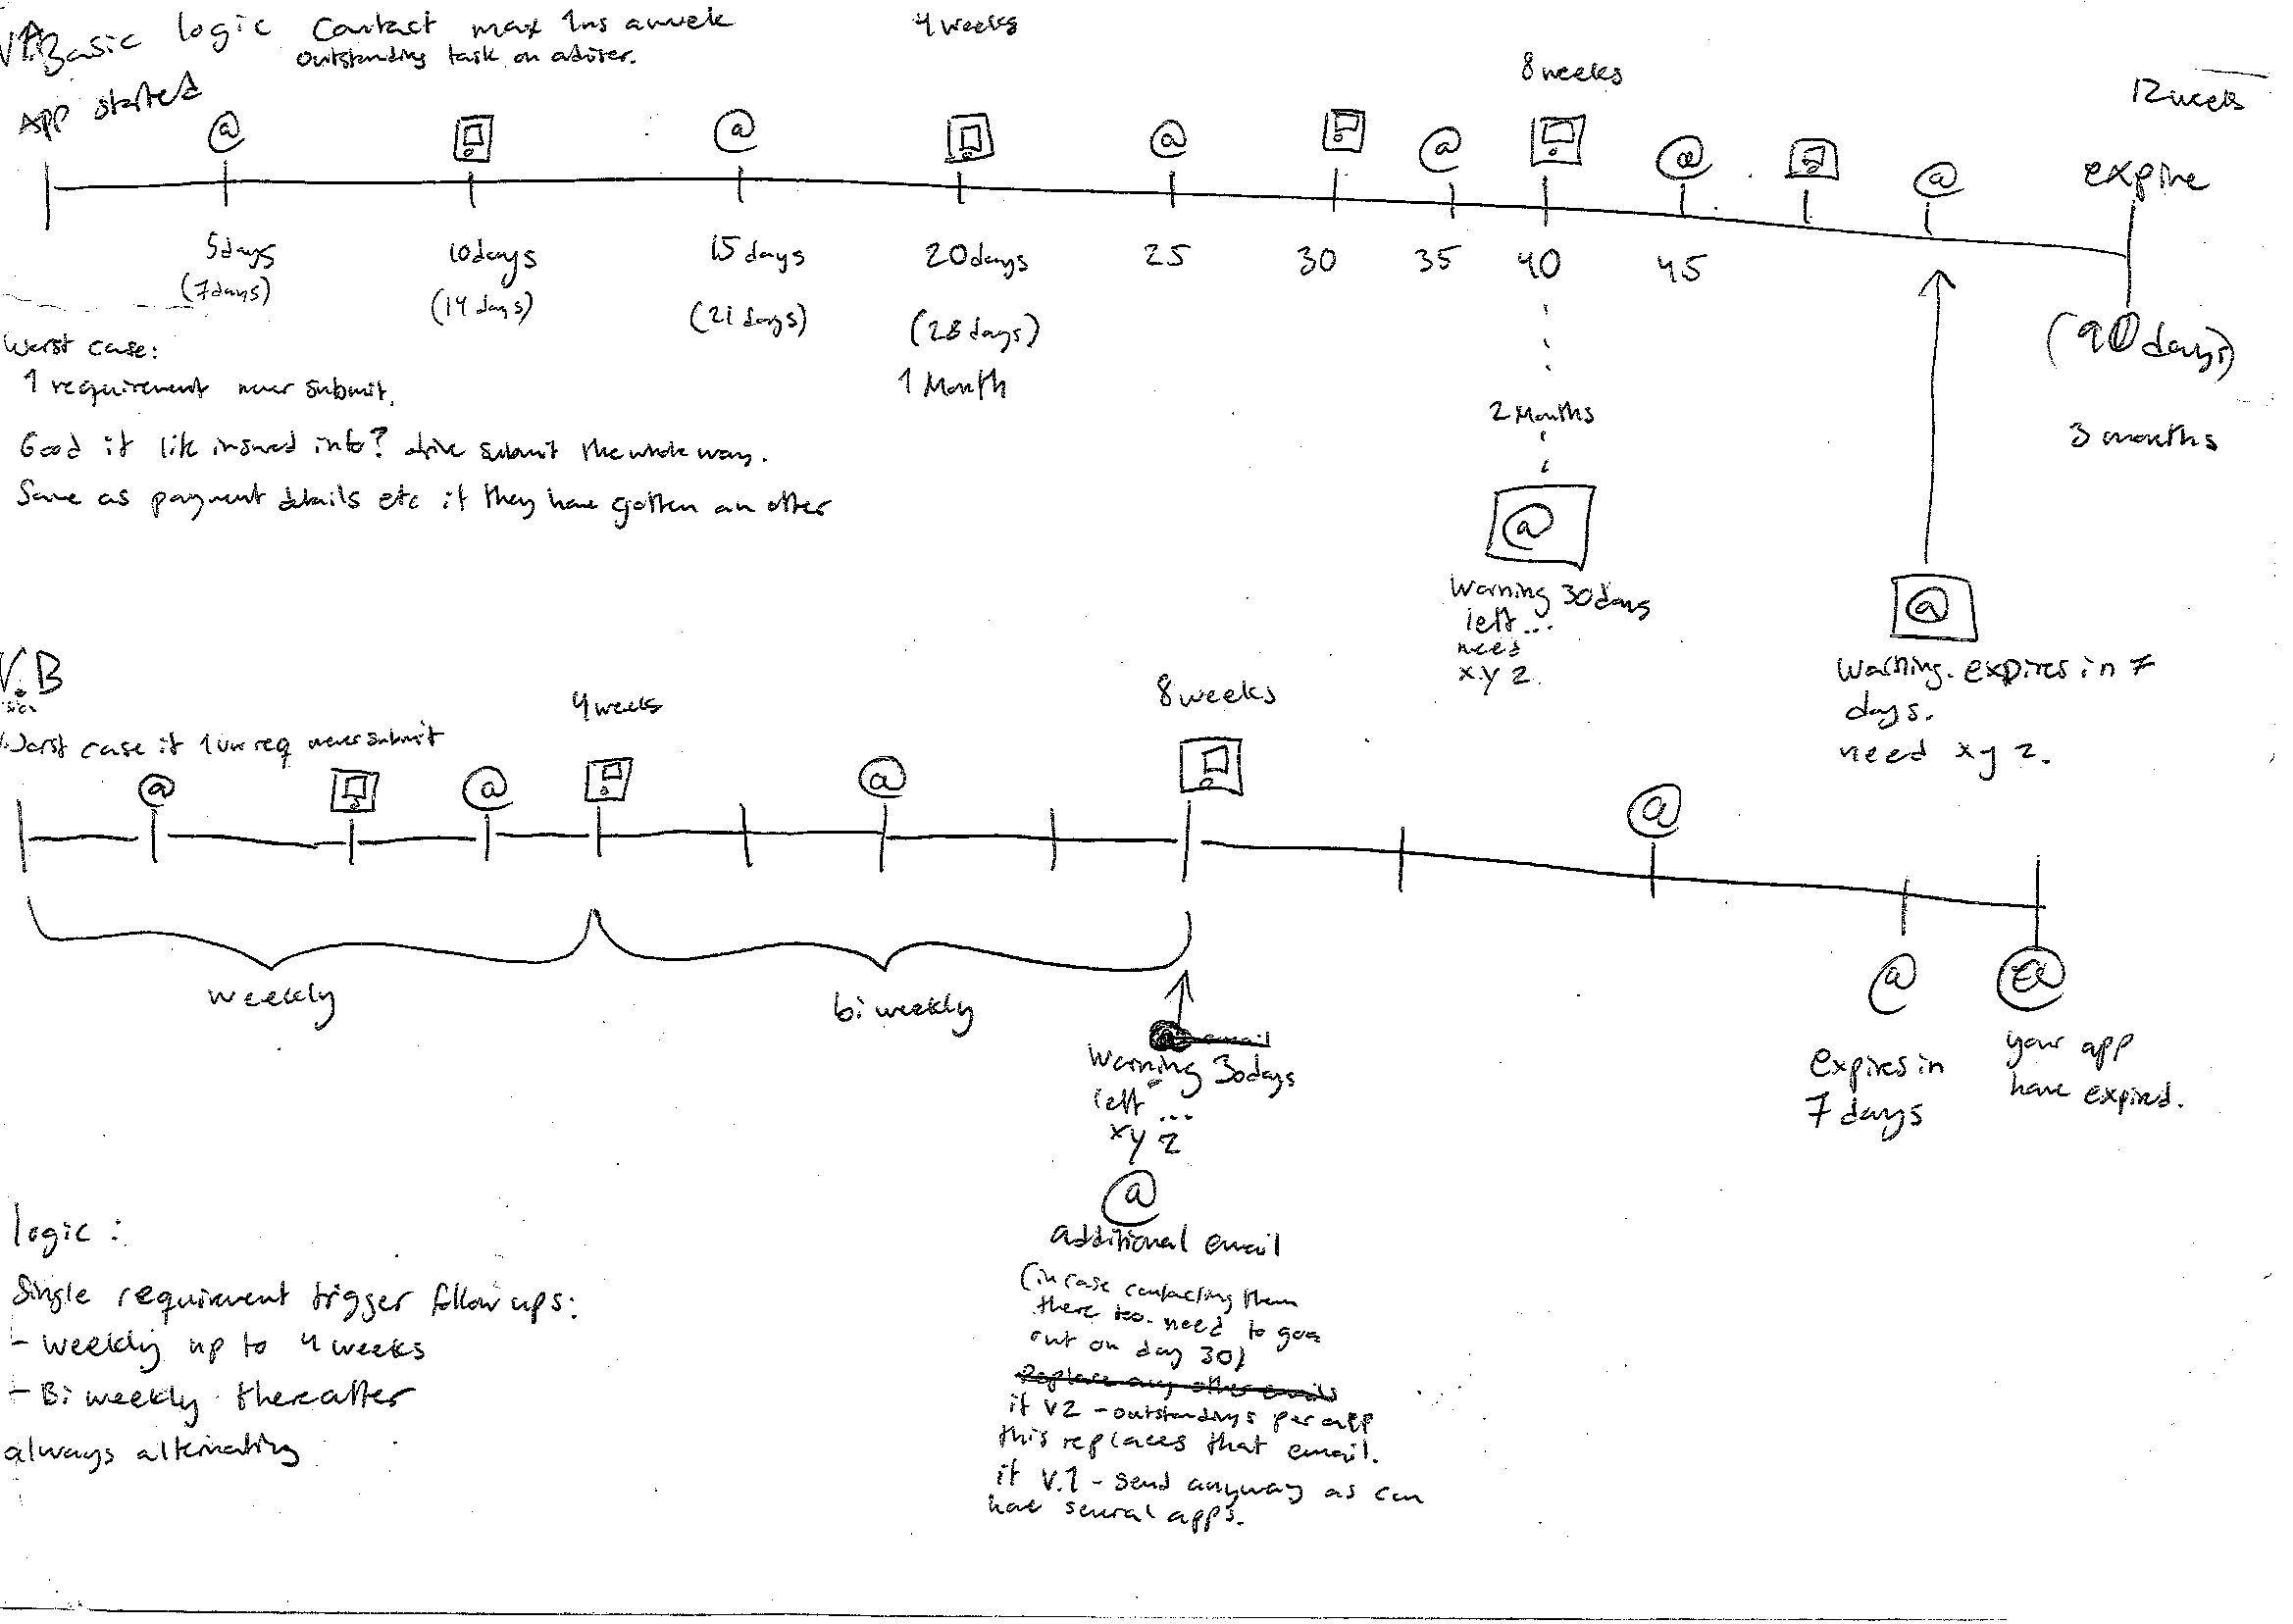 V.A Basic logic Contact max 1ns a week
Outstanding task on adviser.
4 weeks
8 weeks
12 weeks
App started
@
@
@
@
@
@
expire
5 days
10 days
15 days
20 days
25
30
35
40
45
(7 days)
(14 days)
(21 days)
(28 days)
(90 days)
1 Month
2 Months
3 months
Worst case:
1 requirement never submit.
Good if like insured info? drive submit the whole way.
Same as payment details etc if they have gotten an offer
@
Warning 30 days
left ...
need
x.y z.
@
Warning. expires in 7
days.
need x y z.
V.B
Worst case if 1 req never submit
4 weeks
8 weeks
@
@
@
@
weekly
bi weekly
@
expires in
7 days
your app
have expired.
email
Warning 30 days
left ...
xy z
@
additional email
(in case contacting them
there too. need to go
out on day 30)
Replace any other emails
if V2 - outstandings per app
this replaces that email.
if V.1 - send anyway as can
have several apps.
logic :
Single requirement trigger follow ups:
- weekly up to 4 weeks
- Bi weekly thereafter
always alternating